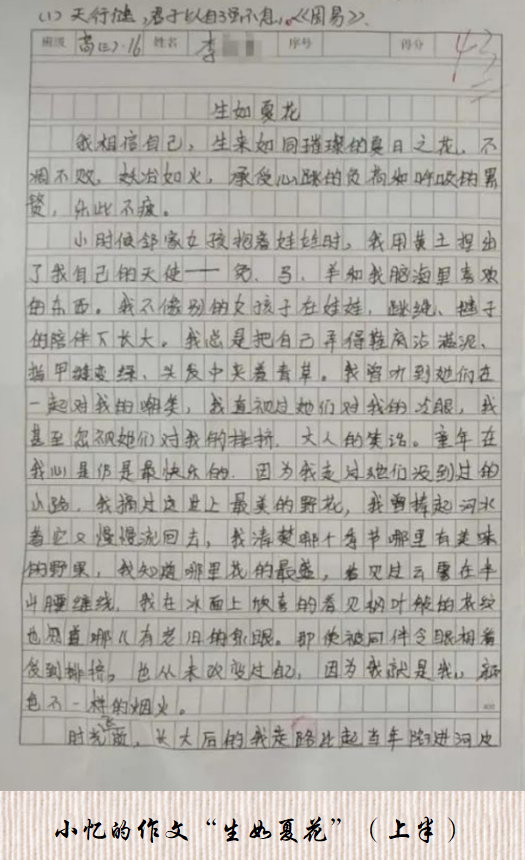 (1) 天行健，君子以自强不息。《周易》.
班级 高(二)·16 姓名 李 序号 得分 43
生如夏花
我相信自己，生来如同璀璨的夏日之花，不
凋不败，妖冶如火，承受心跳的负荷和呼吸的累
赘，乐此不疲。
小时候邻家女孩抱着娃娃时，我用黄土捏出
了我自己的天使——兔、马、羊和我脑海里喜欢
的东西。我不像别的女孩子在娃娃，跳绳、毽子
的陪伴下长大。我总是把自己弄得鞋底沾满泥、
指甲缝变绿、头发中夹着青草。我曾听到她们在
一起对我的嘲笑，我直视过她们对我的白眼，我
甚至忽视她们对我的排挤，大人的笑话。童年在
我心是仍是最快乐的，因为我走过她们没到过的
小路，我摘过这世上最美的野花，我曾捧起河水
看它又慢慢流回去，我清楚哪个季节哪里有美味
的野果，我知道哪里花的最盛，看见过云雾在半
山腰缠绕，我在冰面上欣喜的看见树叶般的花纹
也知道哪儿有老旧的泉眼。即使被同伴
受到排挤，也从未改变过自己，因为我就是我，颜
色不一样的烟火。
时光飞逝，长大后的我走路比起当年踏进河边
小忆的作文“生如夏花”（上半）